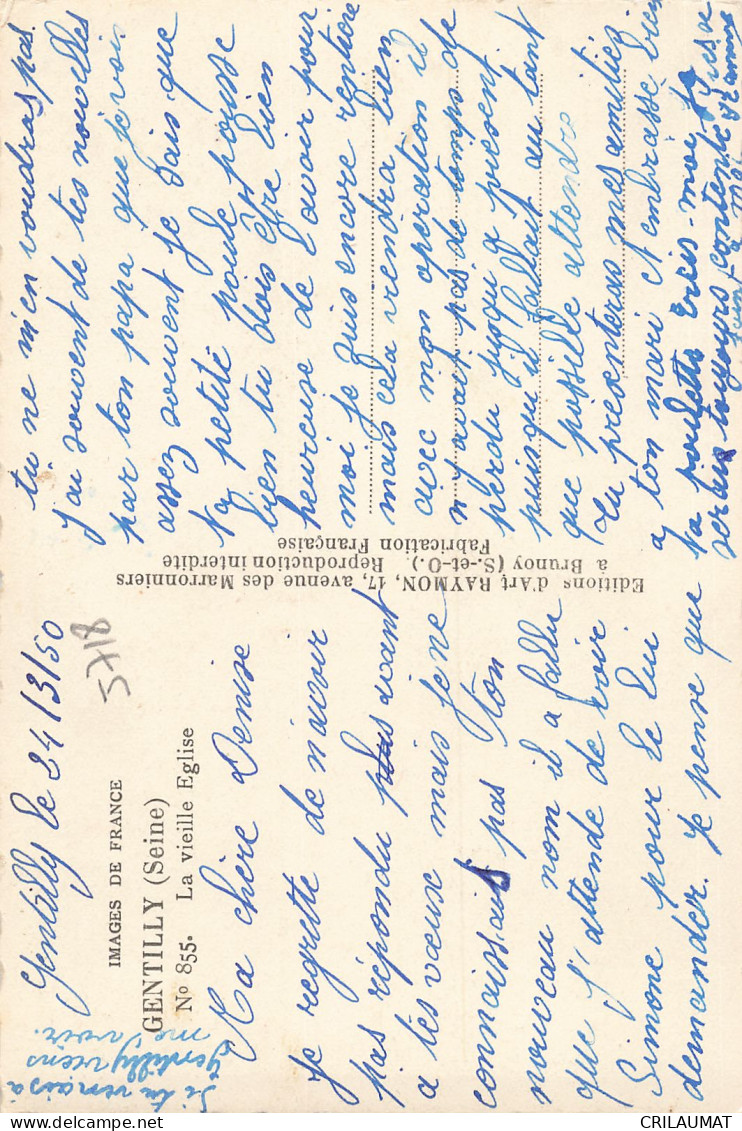 Gentilly le 24/3/50
5718
IMAGES DE FRANCE
GENTILLY (Seine)
Nº 855. La vieille Eglise
Ma chère Denise
Je regrette de n'avoir
pas répondu plus avant
a tes vœux mais je ne
connaissais pas ton
nouveau nom il a fallu
que j'attende de voir
Simone pour le lui
demander. Je pense que
tu ne m'en voudras pas.
j'ai souvent de tes nouvelles
par ton papa que je vois
assez souvent je sais que
ta petite poule pousse
bien tu dois être bien
heureuse de l'avoir pour
moi je suis encore rentière
mais cela viendra bien
avec mon opération il
n'y avait pas de temps de
perdu jusqu'a présent
puisqu'il fallait au tant
que possible attendre
tu presenteras mes amities
a ton mari et embrasse bien
ta poulette ecris-moi je
serais toujours contente
Si tu venais a
Gentilly viens
me voir.
Editions d'Art RAYMON, 17, avenue des Marronniers
à Brunoy (S.-et-O.) Reproduction interdite
Fabrication Française
CRILAUMAT